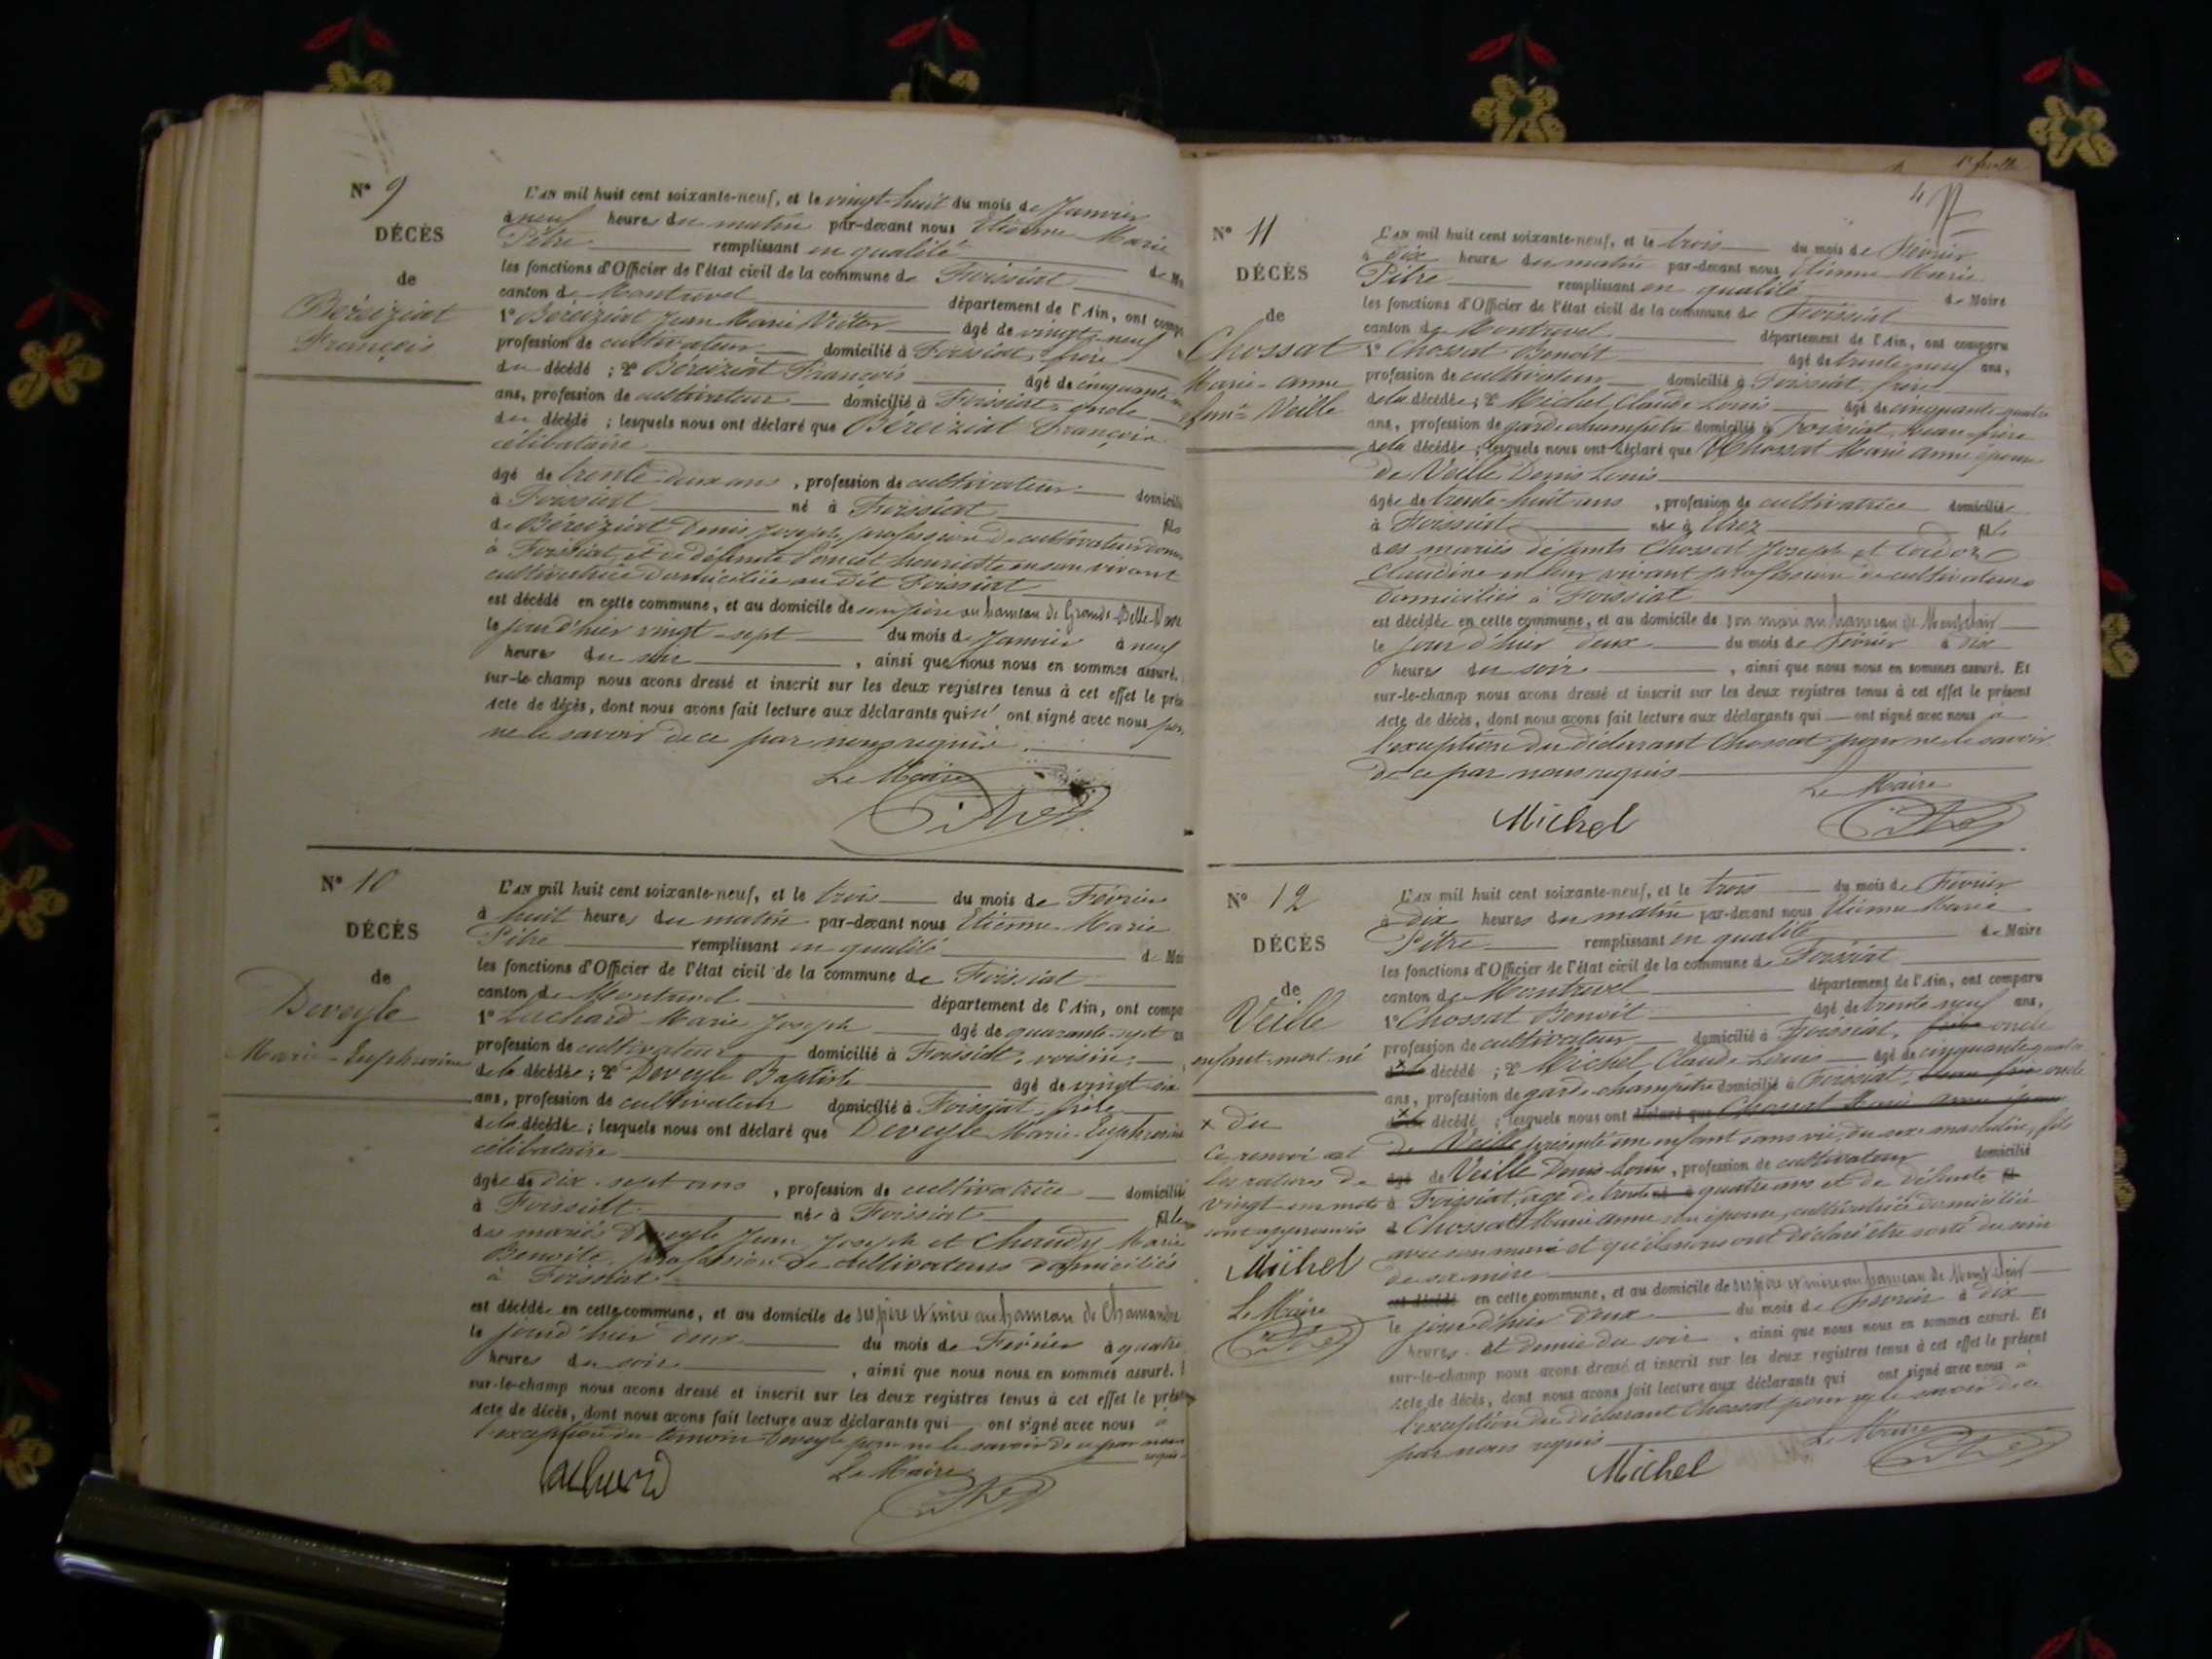 N° 9
DÉCÈS
de
Béréziat
François
L'AN mil huit cent soixante-neuf, et le vingt-huit du mois de Janvier
à neuf heures du matin par-devant nous Etienne Marie
Pitre remplissant en qualité de
les fonctions d'Officier de l'état civil de la commune de Foissiat
canton de Montrevel département de l'Ain, ont
1° Béréziat Jean Marie Victor âgé de vingt-neuf
profession de cultivateur domicilié à Foissiat, frère
du décédé ; 2° Béréziat François âgé de cinquante
ans, profession de cultivateur domicilié à Foissiat, oncle
du décédé ; lesquels nous ont déclaré que Béréziat François
célibataire
âgé de trente deux ans , profession de cultivateur
à Foissiat né à Foissiat fils
de Béréziat Denis Joseph, profession de cultivateur
à Foissiat, et de défunte Poncet henriette en son vivant
cultivatrice domiciliée au dit Foissiat
est décédé en cette commune, et au domicile de son père au hameau de
le jour d'hier vingt-sept du mois de Janvier à neuf
heures du soir , ainsi que nous nous en sommes assuré.
sur-le-champ nous avons dressé et inscrit sur les deux registres tenus à cet effet le
Acte de décès, dont nous avons fait lecture aux déclarants qui n' ont signé avec nous pour
ne le savoir de ce par nous requis.
Le Maire
Pitre
N° 10
DÉCÈS
de
Deveyle
Marie-Euphrasine
L'AN mil huit cent soixante-neuf, et le trois du mois de Février
à huit heures du matin par-devant nous Etienne Marie
Pitre remplissant en qualité de
les fonctions d'Officier de l'état civil de la commune de Foissiat
canton de Montrevel département de l'Ain, ont
1° Luchard Marie Joseph âgé de quarante-sept
profession de cultivateur domicilié à Foissiat, voisin
de la décédée ; 2° Deveyle Baptiste âgé de vingt-six
ans, profession de cultivateur domicilié à Foissiat, frère
de la décédée ; lesquels nous ont déclaré que Deveyle Marie-Euphrasine
célibataire
âgée de dix-sept ans , profession de cultivatrice
à Foissiat née à Foissiat fille
des mariés Deveyle Jean Joseph et Chaudy Marie
Benoite, profession de cultivateurs domiciliés
à Foissiat
est décédée en cette commune, et au domicile de ses père et mère au hameau de
le jour d'hier deux du mois de Février à quatre
heures du soir , ainsi que nous nous en sommes assuré.
sur-le-champ nous avons dressé et inscrit sur les deux registres tenus à cet effet le
Acte de décès, dont nous avons fait lecture aux déclarants qui ont signé avec nous à
l'exception du témoin Deveyle pour ne le savoir de ce par nous
requis
Le Maire
Pitre
N° 11
DÉCÈS
de
Chossat
Marie-anne
fme Veille
L'AN mil huit cent soixante-neuf, et le trois du mois de Février
à dix heures du matin par-devant nous Etienne Marie
Pitre remplissant en qualité de Maire
les fonctions d'Officier de l'état civil de la commune de Foissiat
canton de Montrevel département de l'Ain, ont comparu
1° Chossat Benoit âgé de trente neuf ans,
profession de cultivateur domicilié à Foissiat, frère
de la décédée ; 2° Michel Claude Louis âgé de cinquante quatre
ans, profession de garde champêtre domicilié à Foissiat, beau-frère
de la décédée ; lesquels nous ont déclaré que Chossat Marie anne épouse
de Veille Denis Louis
âgée de trente-huit ans , profession de cultivatrice domiciliée
à Foissiat née à fille
des mariés défunts Chossat Joseph et
Claudine en leur vivant profession de cultivateurs
domiciliés à Foissiat
est décédée en cette commune, et au domicile de son mari au hameau de
le jour d'hier deux du mois de Février à dix
heures du soir , ainsi que nous nous en sommes assuré. Et
sur-le-champ nous avons dressé et inscrit sur les deux registres tenus à cet effet le présent
Acte de décès, dont nous avons fait lecture aux déclarants qui ont signé avec nous à
l'exception du déclarant Chossat pour ne le savoir
de ce par nous requis
Le Maire
Michel Pitre
N° 12
DÉCÈS
de
Veille
enfant mort-né
x du
Ce renvoi et
les ratures de
vingt-un mots
sont approuvés
Michel
Le Maire
Pitre
L'AN mil huit cent soixante-neuf, et le trois du mois de Février
à dix heures du matin par-devant nous Etienne Marie
Pitre remplissant en qualité de Maire
les fonctions d'Officier de l'état civil de la commune de Foissiat
canton de Montrevel département de l'Ain, ont comparu
1° Chossat Benoit âgé de trente neuf ans,
profession de cultivateur domicilié à Foissiat, oncle
x décédé ; 2° Michel Claude Louis âgé de cinquante quatre
ans, profession de garde-champêtre domicilié à Foissiat, beau frère oncle
x décédé ; lesquels nous ont déclaré que Chossat Marie anne épouse
de Veille présenté un enfant sans vie, du sexe masculin, fils
âgé de Veille Denis Louis, profession de cultivateur domicilié
à Foissiat, âgé de trente quatre ans et de défunte
de Chossat Marie anne son épouse, cultivatrice domiciliée
avec son mari et qu'ils nous ont déclaré être sorti du sein
de sa mère
est décédé en cette commune, et au domicile de ses père et mère au hameau de
le jour d'hier deux du mois de Février à dix
heures et demie du soir , ainsi que nous nous en sommes assuré. Et
sur-le-champ nous avons dressé et inscrit sur les deux registres tenus à cet effet le présent
Acte de décès, dont nous avons fait lecture aux déclarants qui ont signé avec nous à
l'exception du déclarant Chossat pour ne le savoir de ce
par nous requis Le Maire
Michel Pitre